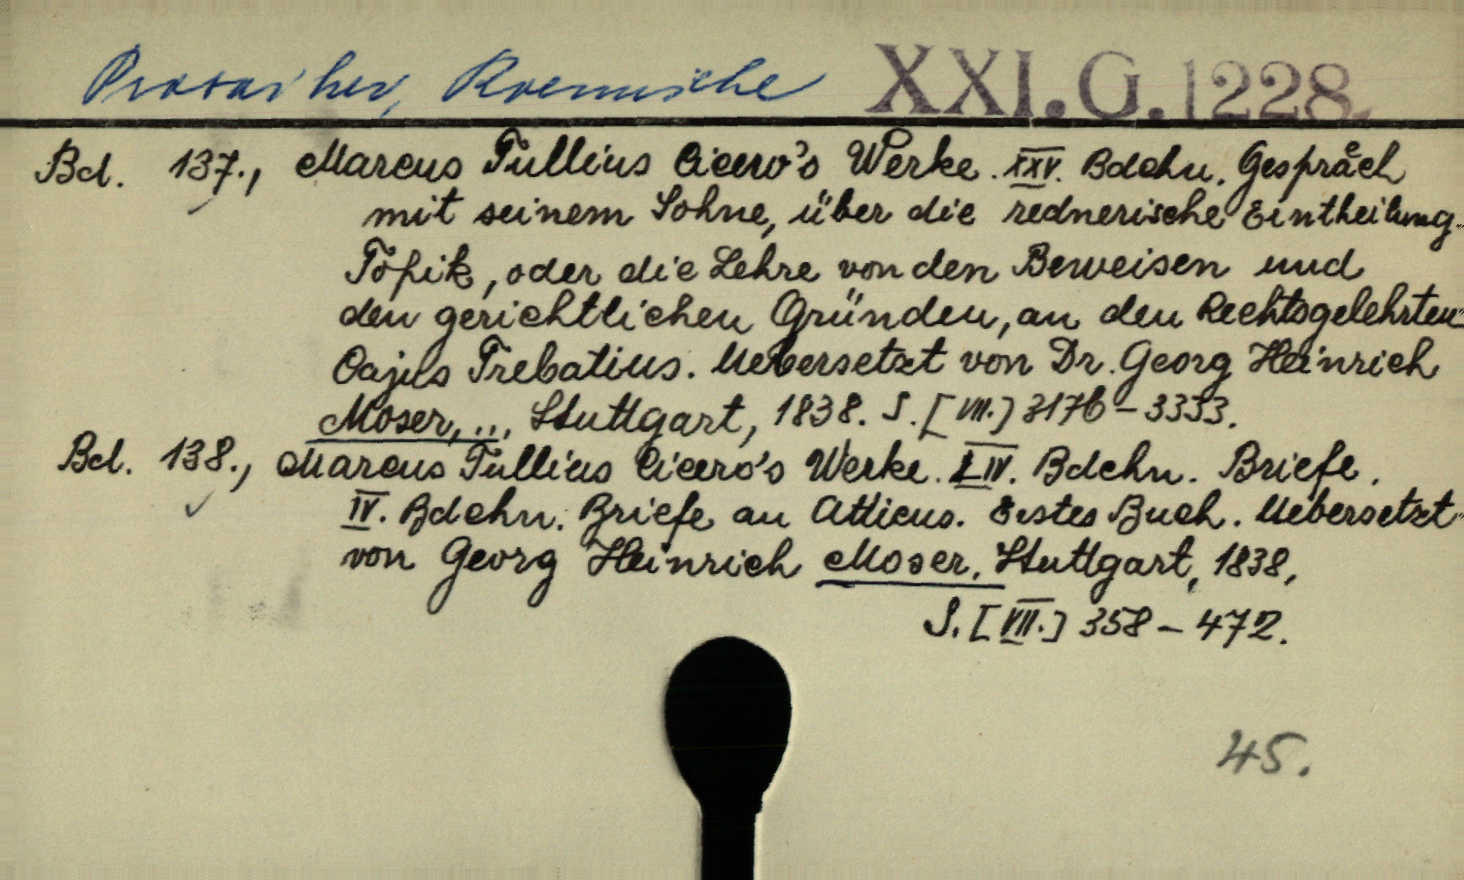 Prosaiker, Roemische XXI.G.1228.
Bd. 137., Marcus Tullius Cicero's Werke. XXV. Bdchn. Gespräch
mit seinem Sohne, über die rednerische Eintheilung.
Topik, oder die Lehre von den Beweisen und
den gerichtlichen Gründen, an den Rechtsgelehrten
Cajus Trebatius. Uebersetzt von Dr. Georg Heinrich
Moser, ... Stuttgart, 1838. S. [VII.] 3176-3333.
Bd. 138., Marcus Tullius Cicero's Werke. LIV. Bdchn. Briefe.
IV. Bdchn. Briefe an Atticus. Erstes Buch. Uebersetzt
von Georg Heinrich Moser. Stuttgart, 1838,
S. [VII.] 358-472.
45.